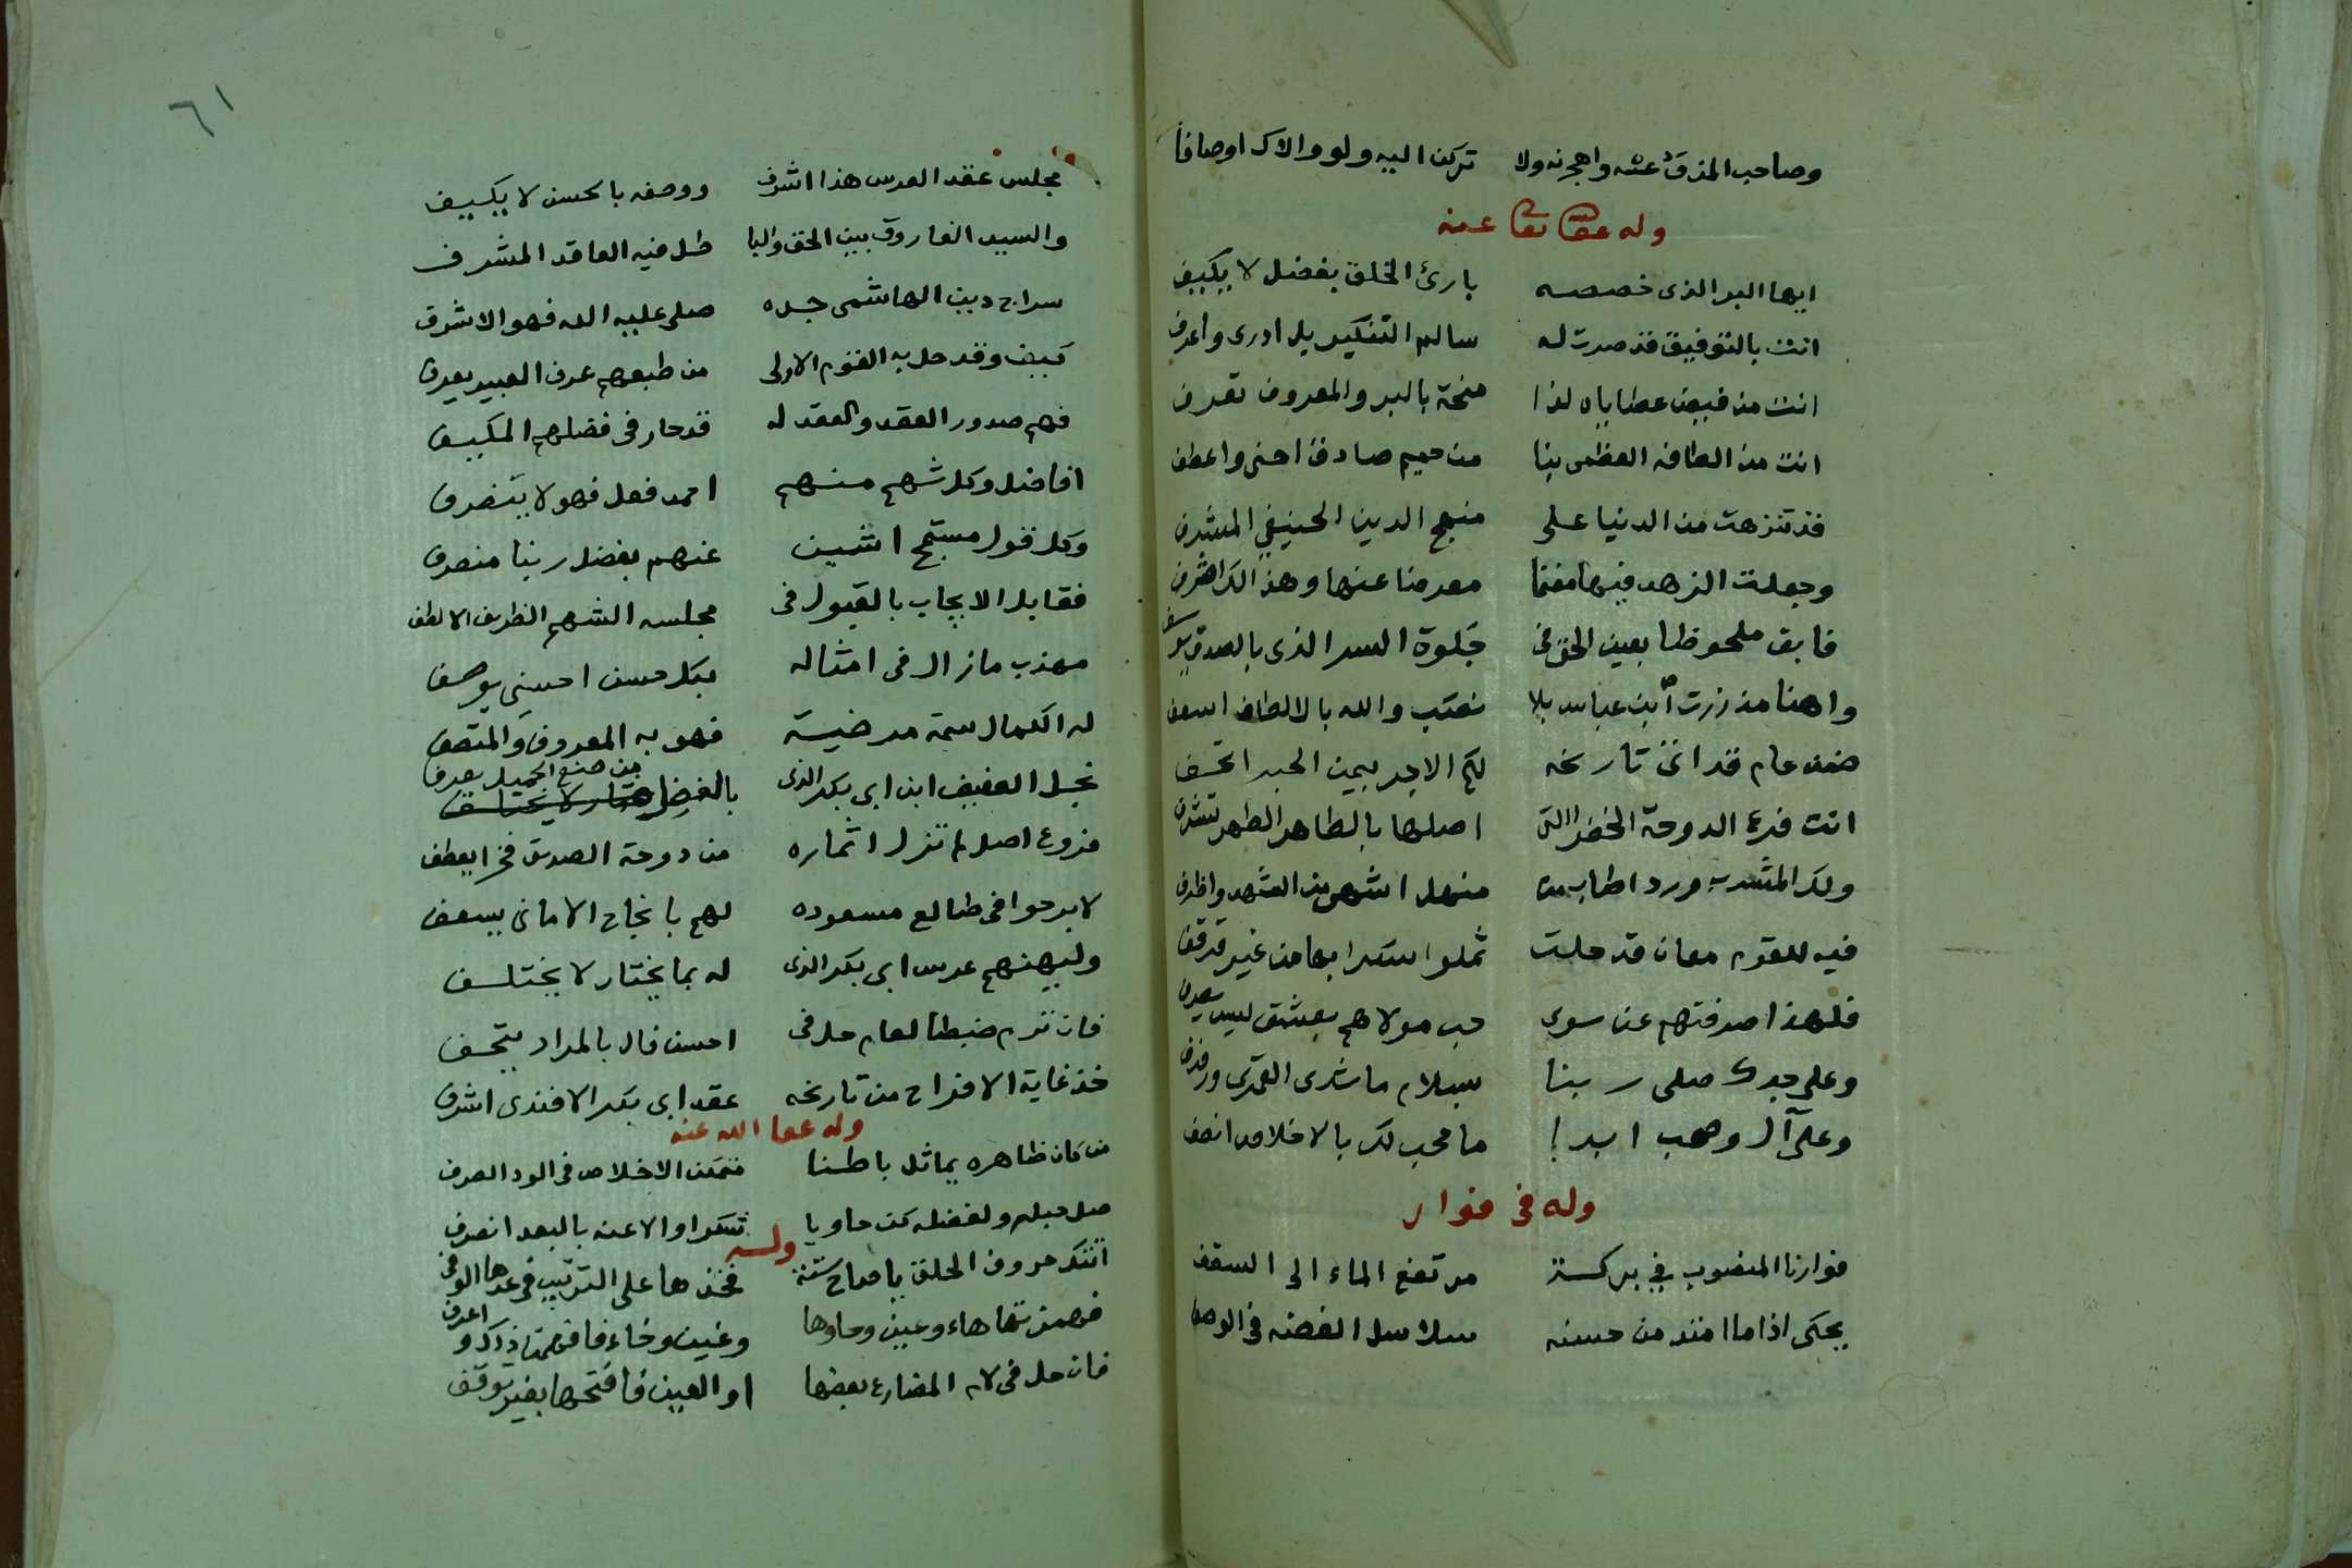 وصاحب المذق عنه واهجرنه ولا تركن اليه ولو والاك اوصافا
وله عفا عنه
ايها البر الذى خصصه بارئ الخلق بفضل لا يكيف
انت بالتوفيق قد صرت له سالم التنكير بل ادرى واعرف
انت من فيض عطاياه لذا منحة بالبر والمعروف تعرف
انت من الطافه العظمى بنا من حميم صادق احنى واعطف
قد تنزهت من الدنيا على منهج الدين الحنيفي المشرف
وجعلت الزهد فيها مغنما معرضا عنها وهذا لك اشرف
فابق ملحوظا بعين الحق فى جلوة السر الذى بالصدق
واهنا مذ زرت ابن عباس بلا نصب والله بالالطاف اسعف
ضمن عام قد اتى تاريخه لكم الاجر بيمن الحبر اتحف
انت فرع الدوحة الخضرا التى اصلها بالطاهر الطهر تشرف
ولك المشرب ورد اطاب منه منهل اشهى من الشهد واظرف
فيه للقوم معان قد حلت ثملوا سكرا بها من غير قرقف
فلهذا صرفتهم عن سوى حب مولاهم بعشق ليس يصرف
وعلى جدك صلى ربنا بسلام ما شدى القمرى ورفرف
وعلى آل وصحب ابدا ما محب لك بالاخلاص انصف
وله فى فوار
فوارنا المنصوب في بركة مرتفع الماء الى السقف
يحكى اذا ما امتد من حسنه سلاسل الفضة فى الوصف
٦١
مجلس عقد العرس هذا اشرف ووصفه بالحسن لا يكيف
والسيد الفاروق بين الحق والباطل فيه العاقد المشرف
سراج دين الهاشمى جده صلى عليه الله فهو الاشرف
كيف وقد حل به القوم الاولى من طبعهم عرف العبير يعرف
فهم صدور العقد والعقد له قد حار فى فضلهم المكيف
افاضل وكل شهم منهم احمد فعل فهو لا ينصرف
وكل قول مستقبح اشين عنهم بفضل ربنا منصرف
فقابل الايجاب بالقبول فى مجلسه الشهم الظريف الالطف
مهذب مازال فى امثاله بكل حسن احسنى يوصف
له الكمال سمة مرضية فهو به المعروف والمتصف
نجل العفيف ابن ابى بكر الذى بالفضل من صنع الجميل يعرف
فروع اصل لم تزل اثماره من دوحة الصديق فخرا يعطف
لا برحوا فى طالع مسعوده لهم بانجاح الامانى يسعف
وليهنهم عرس ابى بكر الذى له بما يختار لا يختلف
فان ترم ضبطا لعام حل فى احسن فال بالمراد يتحف
خذ غاية الافراح من تاريخه عقد ابى بكر الافندى اشرف
وله عفا الله عنه
من كان ظاهره يماثل باطنا فتمكن الاخلاص فى الود الصرف
صل حبله ولفضله كن حاويا شكرا والا عنه بالبعد انصرف
وله
اتتك حروف الحلق ياصاح ستة فخذها على الترتيب فى عدها الوفى
فهمزتها هاء وعين وحاوها وغين وخاء فافهمن ذاك واعرف
فان حل فى لام المضارع بعضها او العين فافتحها بغير توقف